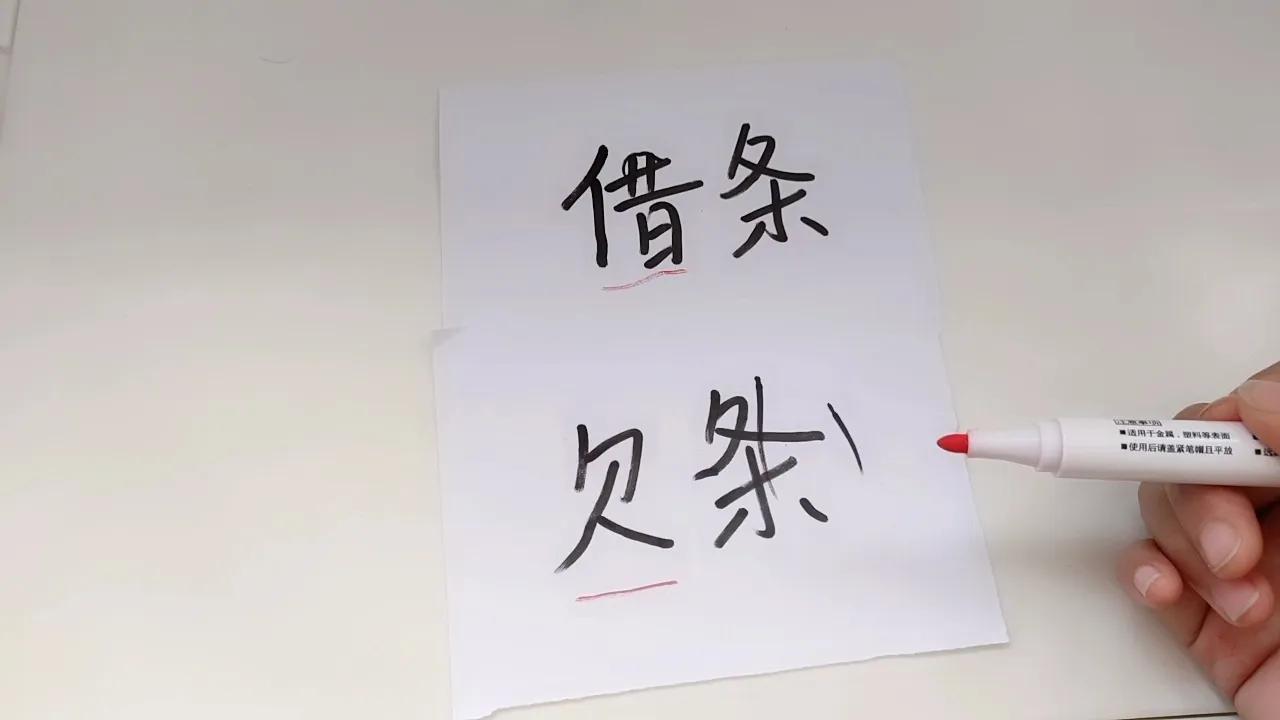 借条
欠条
注意事项
■适用于金属,塑料等表面
■使用后请盖紧笔帽且平放